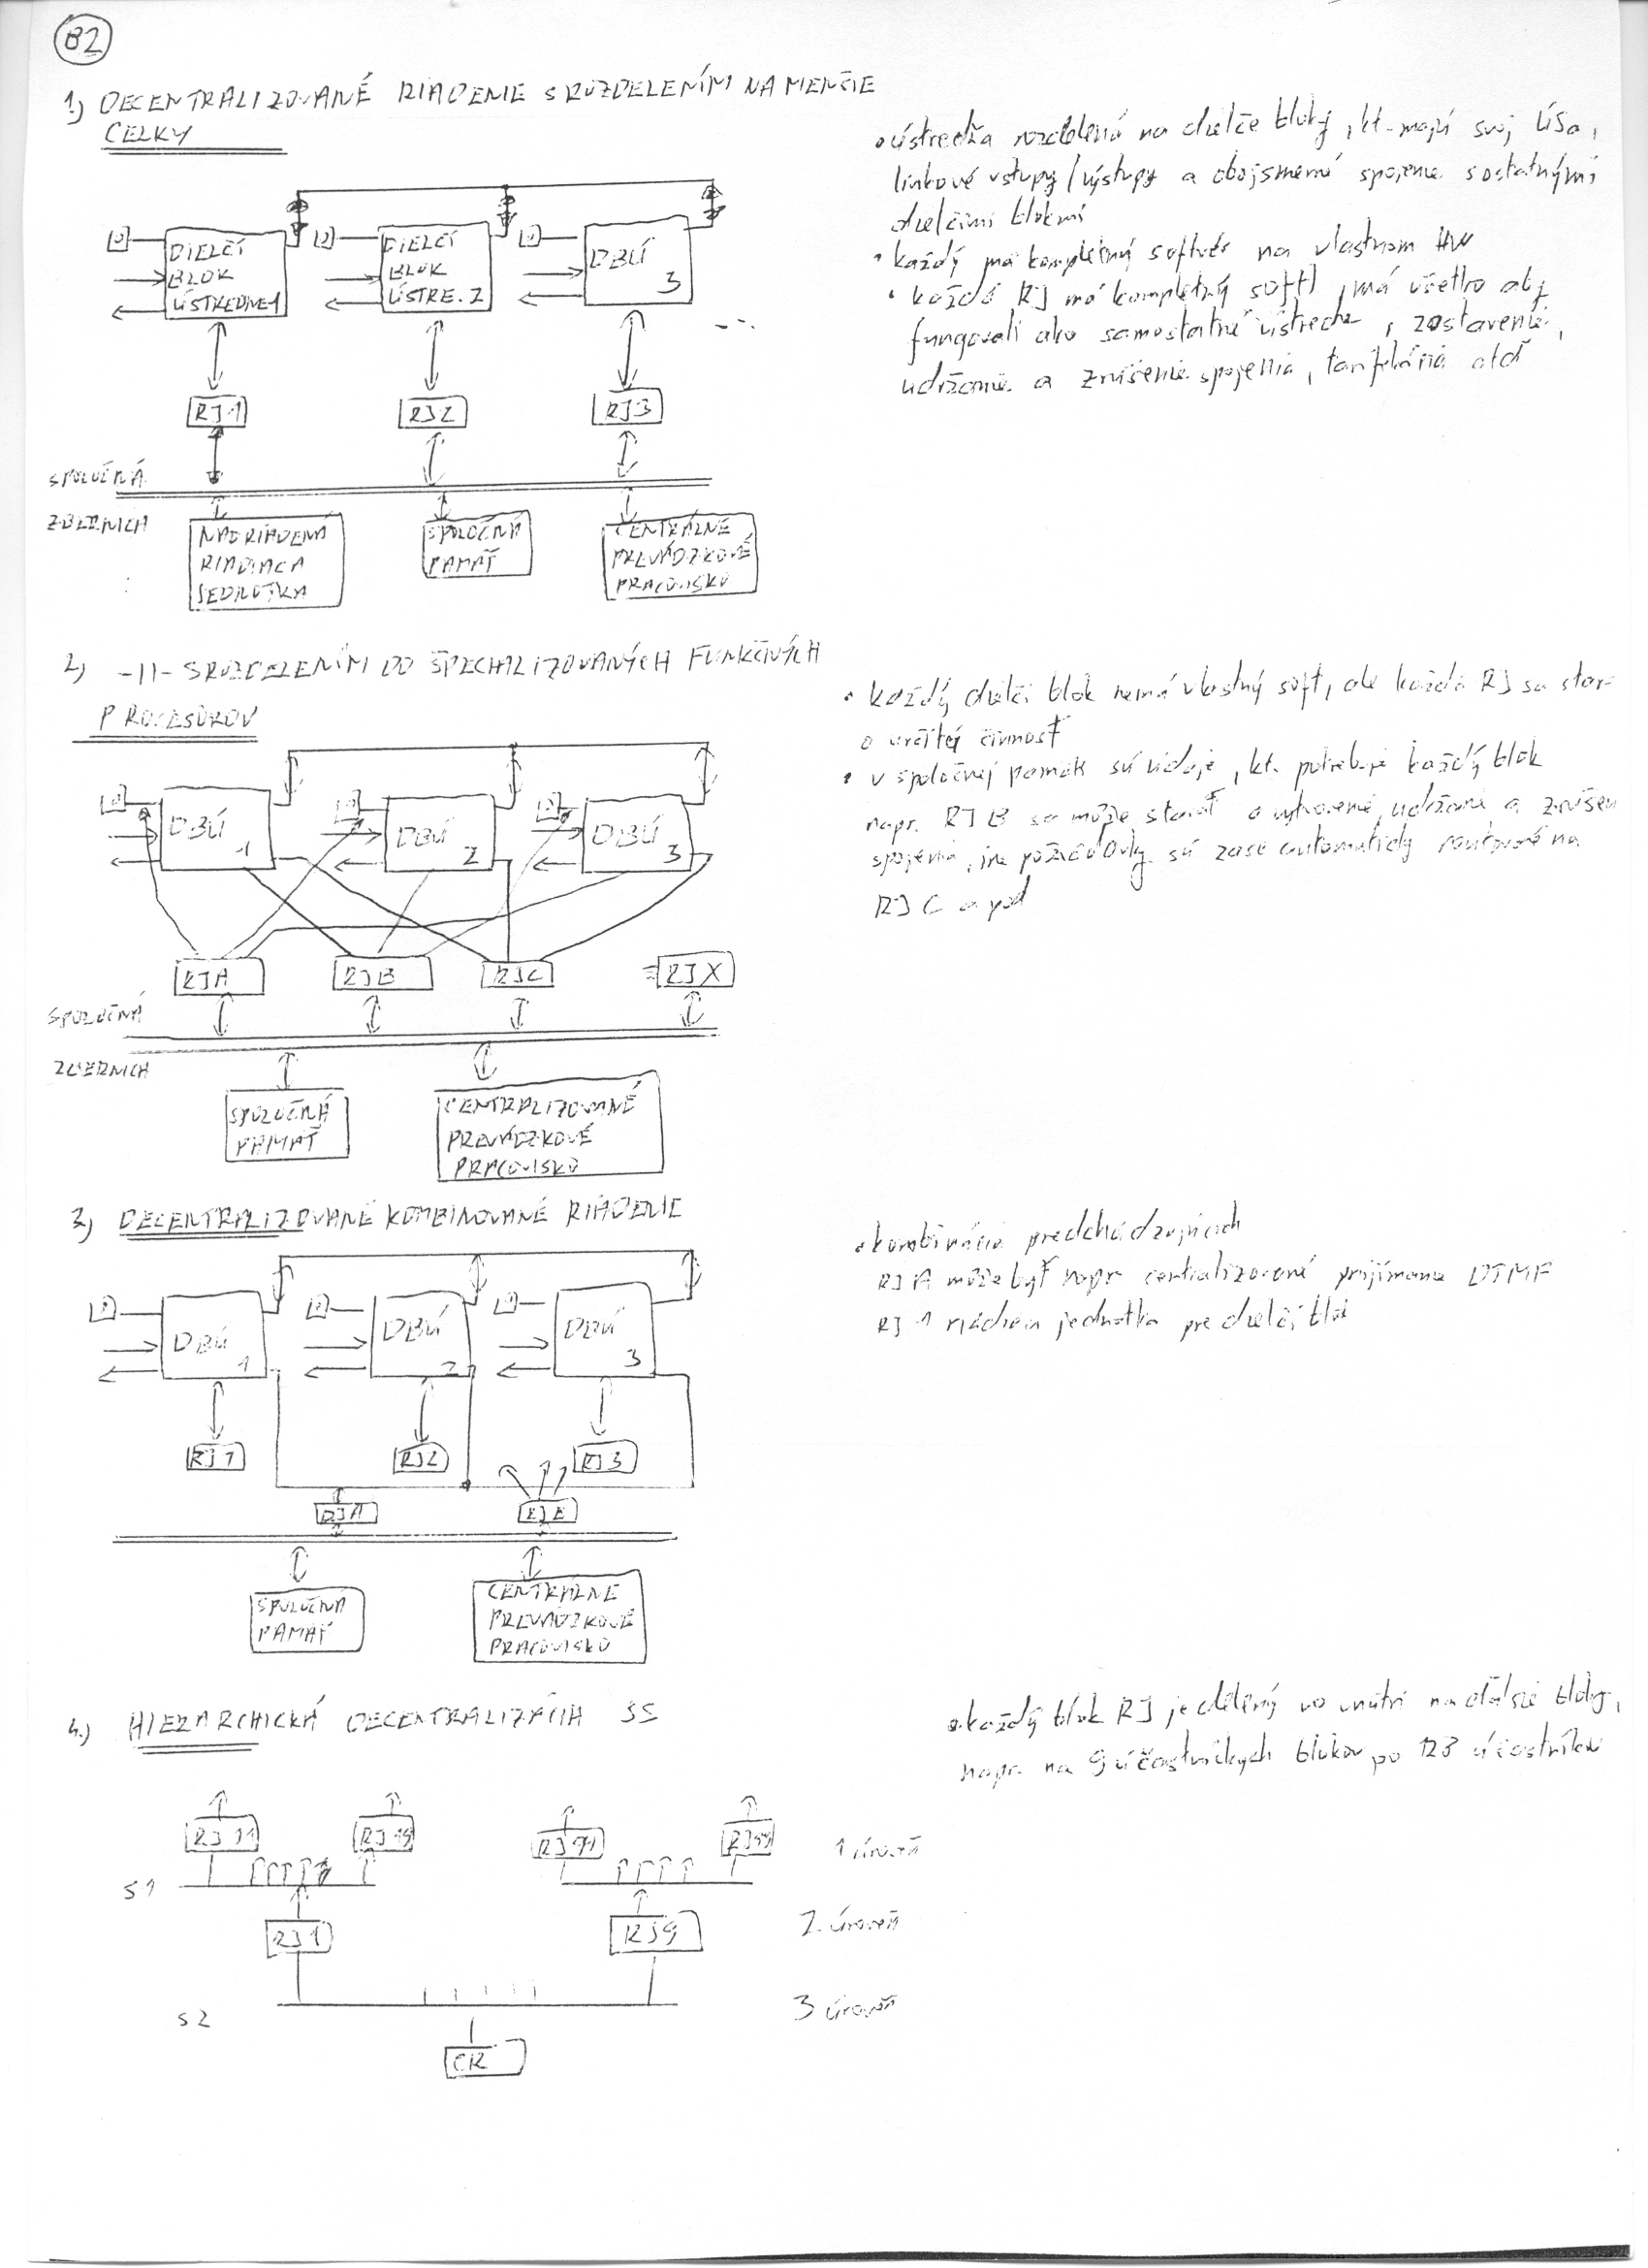 B2
1) DECENTRALIZOVANÉ RIADENIE S ROZDELENÍM NA MENŠIE
CELKY
• ústredňa rozdelená na dielče bloky, kt. majú svoj ÚSo,
linkové vstupy/výstupy a obojsmerné spojenie s ostatnými
dielčimi blokmi
• každý má kompletný softvér na vlastnom HW
• každá RJ má kompletný soft, má všetko aby
fungovali ako samostatné ústredne, zostavenie,
udržanie a zrušenie spojenia, tarifikácia atď
DIELČÍ
BLOK
ÚSTREDNE 1
DIELČÍ
BLOK
ÚSTRE. 2
DBÚ
3
...
RJ1
RJ2
RJ3
SPOLOČNÁ
ZBERNICA
NADRIADENÁ
RIADIACA
JEDNOTKA
SPOLOČNÁ
PAMAŤ
CENTRÁLNE
PREVÁDZKOVÉ
PRACOVISKO
2) -11- S ROZDELENÍM DO ŠPECIALIZOVANÝCH FUNKČNÝCH
PROCESOROV
• každý dielči blok nemá vlastný soft, ale každá RJ sa star
o určitej činnosť
• v spoločnej pamäti sú údaje, kt. potrebuje každý blok
napr. RJ B sa môže starať o vytvorenie, udržanie a zrušen
spojenia, iné požiadavky sú zase automaticky routované na
RJ C a pod
DBÚ
1
DBÚ
2
DBÚ
3
RJA
RJB
RJC
RJX
SPOLOČNÁ
ZBERNICA
SPOLOČNÁ
PAMAŤ
CENTRALIZOVANÉ
PREVÁDZKOVÉ
PRACOVISKO
3) DECENTRALIZOVANÉ KOMBINOVANÉ RIADENIE
• kombinácia predchádzajúcich
RJ A môže byť napr centralizované prijímanie DTMF
RJ 1 riadiaca jednotka pre dielčí blok
DBÚ
1
DBÚ
2
DBÚ
3
RJ1
RJ2
RJ3
RJA
RJE
SPOLOČNÁ
PAMAŤ
CENTRÁLNE
PREVÁDZKOVÉ
PRACOVISKO
4.) HIERARCHICKÁ DECENTRALIZÁCIA SS
• každý blok RJ je delený vo vnútri na ďalšie bloky,
napr. na 9 účastníckych blokov po 128 účastníkov
RJ11
RJ19
RJ91
RJ99
1 úroveň
S1
RJ1
RJ9
2. úroveň
S2
3 úroveň
CR